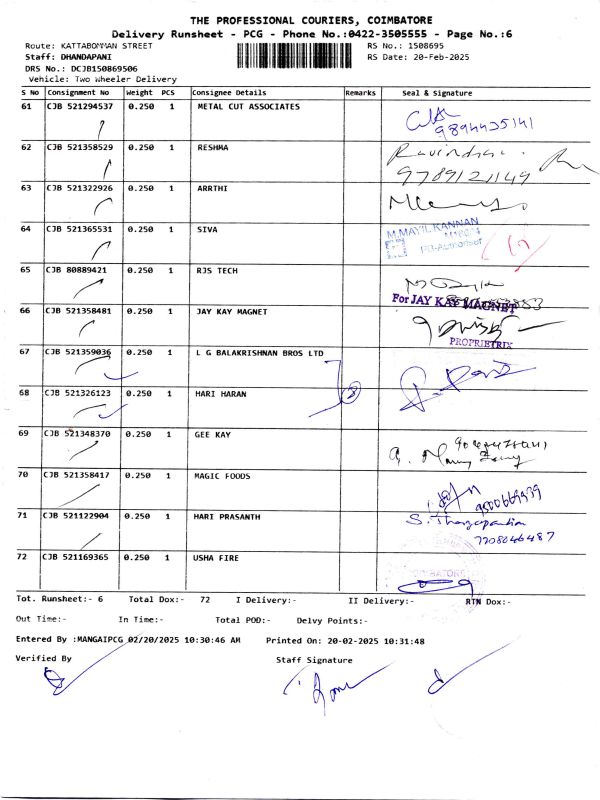 THE PROFESSIONAL COURIERS, COIMBATORE
Delivery Runsheet - PCG - Phone No.:0422-3505555 - Page No.:6
Route: KATTABOMMAN STREET RS No.: 1508695
Staff: DHANDAPANI RS Date: 20-Feb-2025
DRS No.: DCJB150869506
Vehicle: Two Wheeler Delivery
S No Consignment No Weight PCS Consignee Details Remarks Seal & Signature
61 CJB 521294537 0.250 1 METAL CUT ASSOCIATES
9894425141
62 CJB 521358529 0.250 1 RESHMA
9789121149
63 CJB 521322926 0.250 1 ARRTHI
64 CJB 521365531 0.250 1 SIVA M.MAYIL KANNAN
65 CJB 80889421 0.250 1 RJS TECH
For JAY KAY MAGNET
66 CJB 521358481 0.250 1 JAY KAY MAGNET
PROPRIETRIX
67 CJB 521359036 0.250 1 L G BALAKRISHNAN BROS LTD
68 CJB 521326123 0.250 1 HARI HARAN
69 CJB 521348370 0.250 1 GEE KAY
70 CJB 521358417 0.250 1 MAGIC FOODS
9500669939
71 CJB 521122904 0.250 1 HARI PRASANTH
7708046487
72 CJB 521169365 0.250 1 USHA FIRE
Tot. Runsheet:- 6 Total Dox:- 72 I Delivery:- II Delivery:- RTN Dox:-
Out Time:- In Time:- Total POD:- Delvy Points:-
Entered By :MANGAIPCG 02/20/2025 10:30:46 AM Printed On: 20-02-2025 10:31:48
Verified By Staff Signature